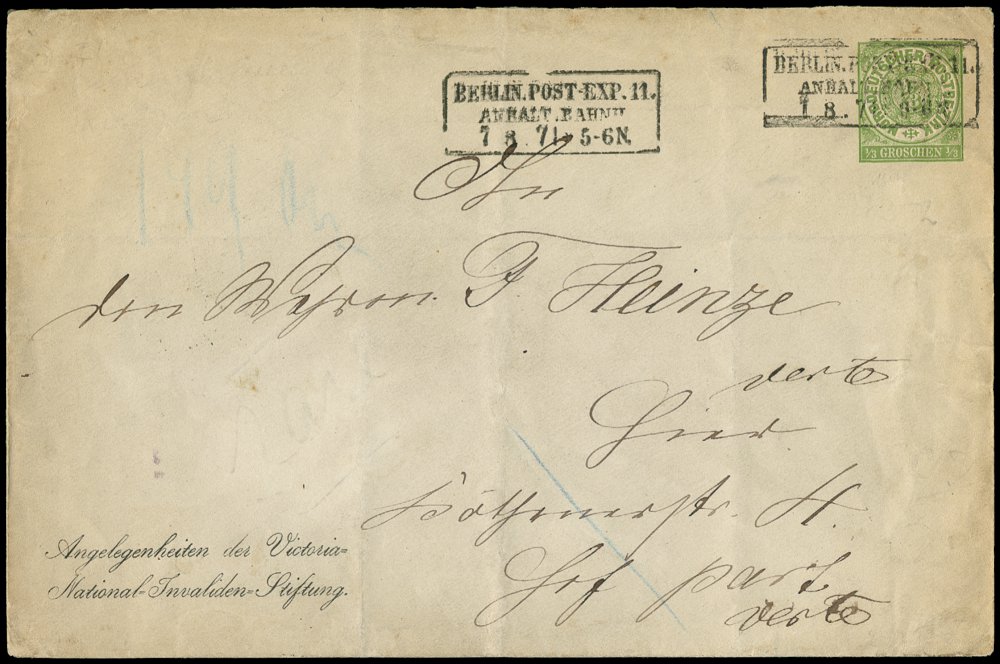 BERLIN.POST-EXP. 11.
ANHALT.BAHNH
7 8. 71 5-6N.
BERLIN. 11.
ANHAL
7 8. 7
NORDDEUTSCHER POSTBEZIRK
1/3 GROSCHEN 1/3
An
den F. Heinze
Hier
Köthenerstr.
Hof part
Angelegenheiten der Victoria=
National=Invaliden=Stiftung.